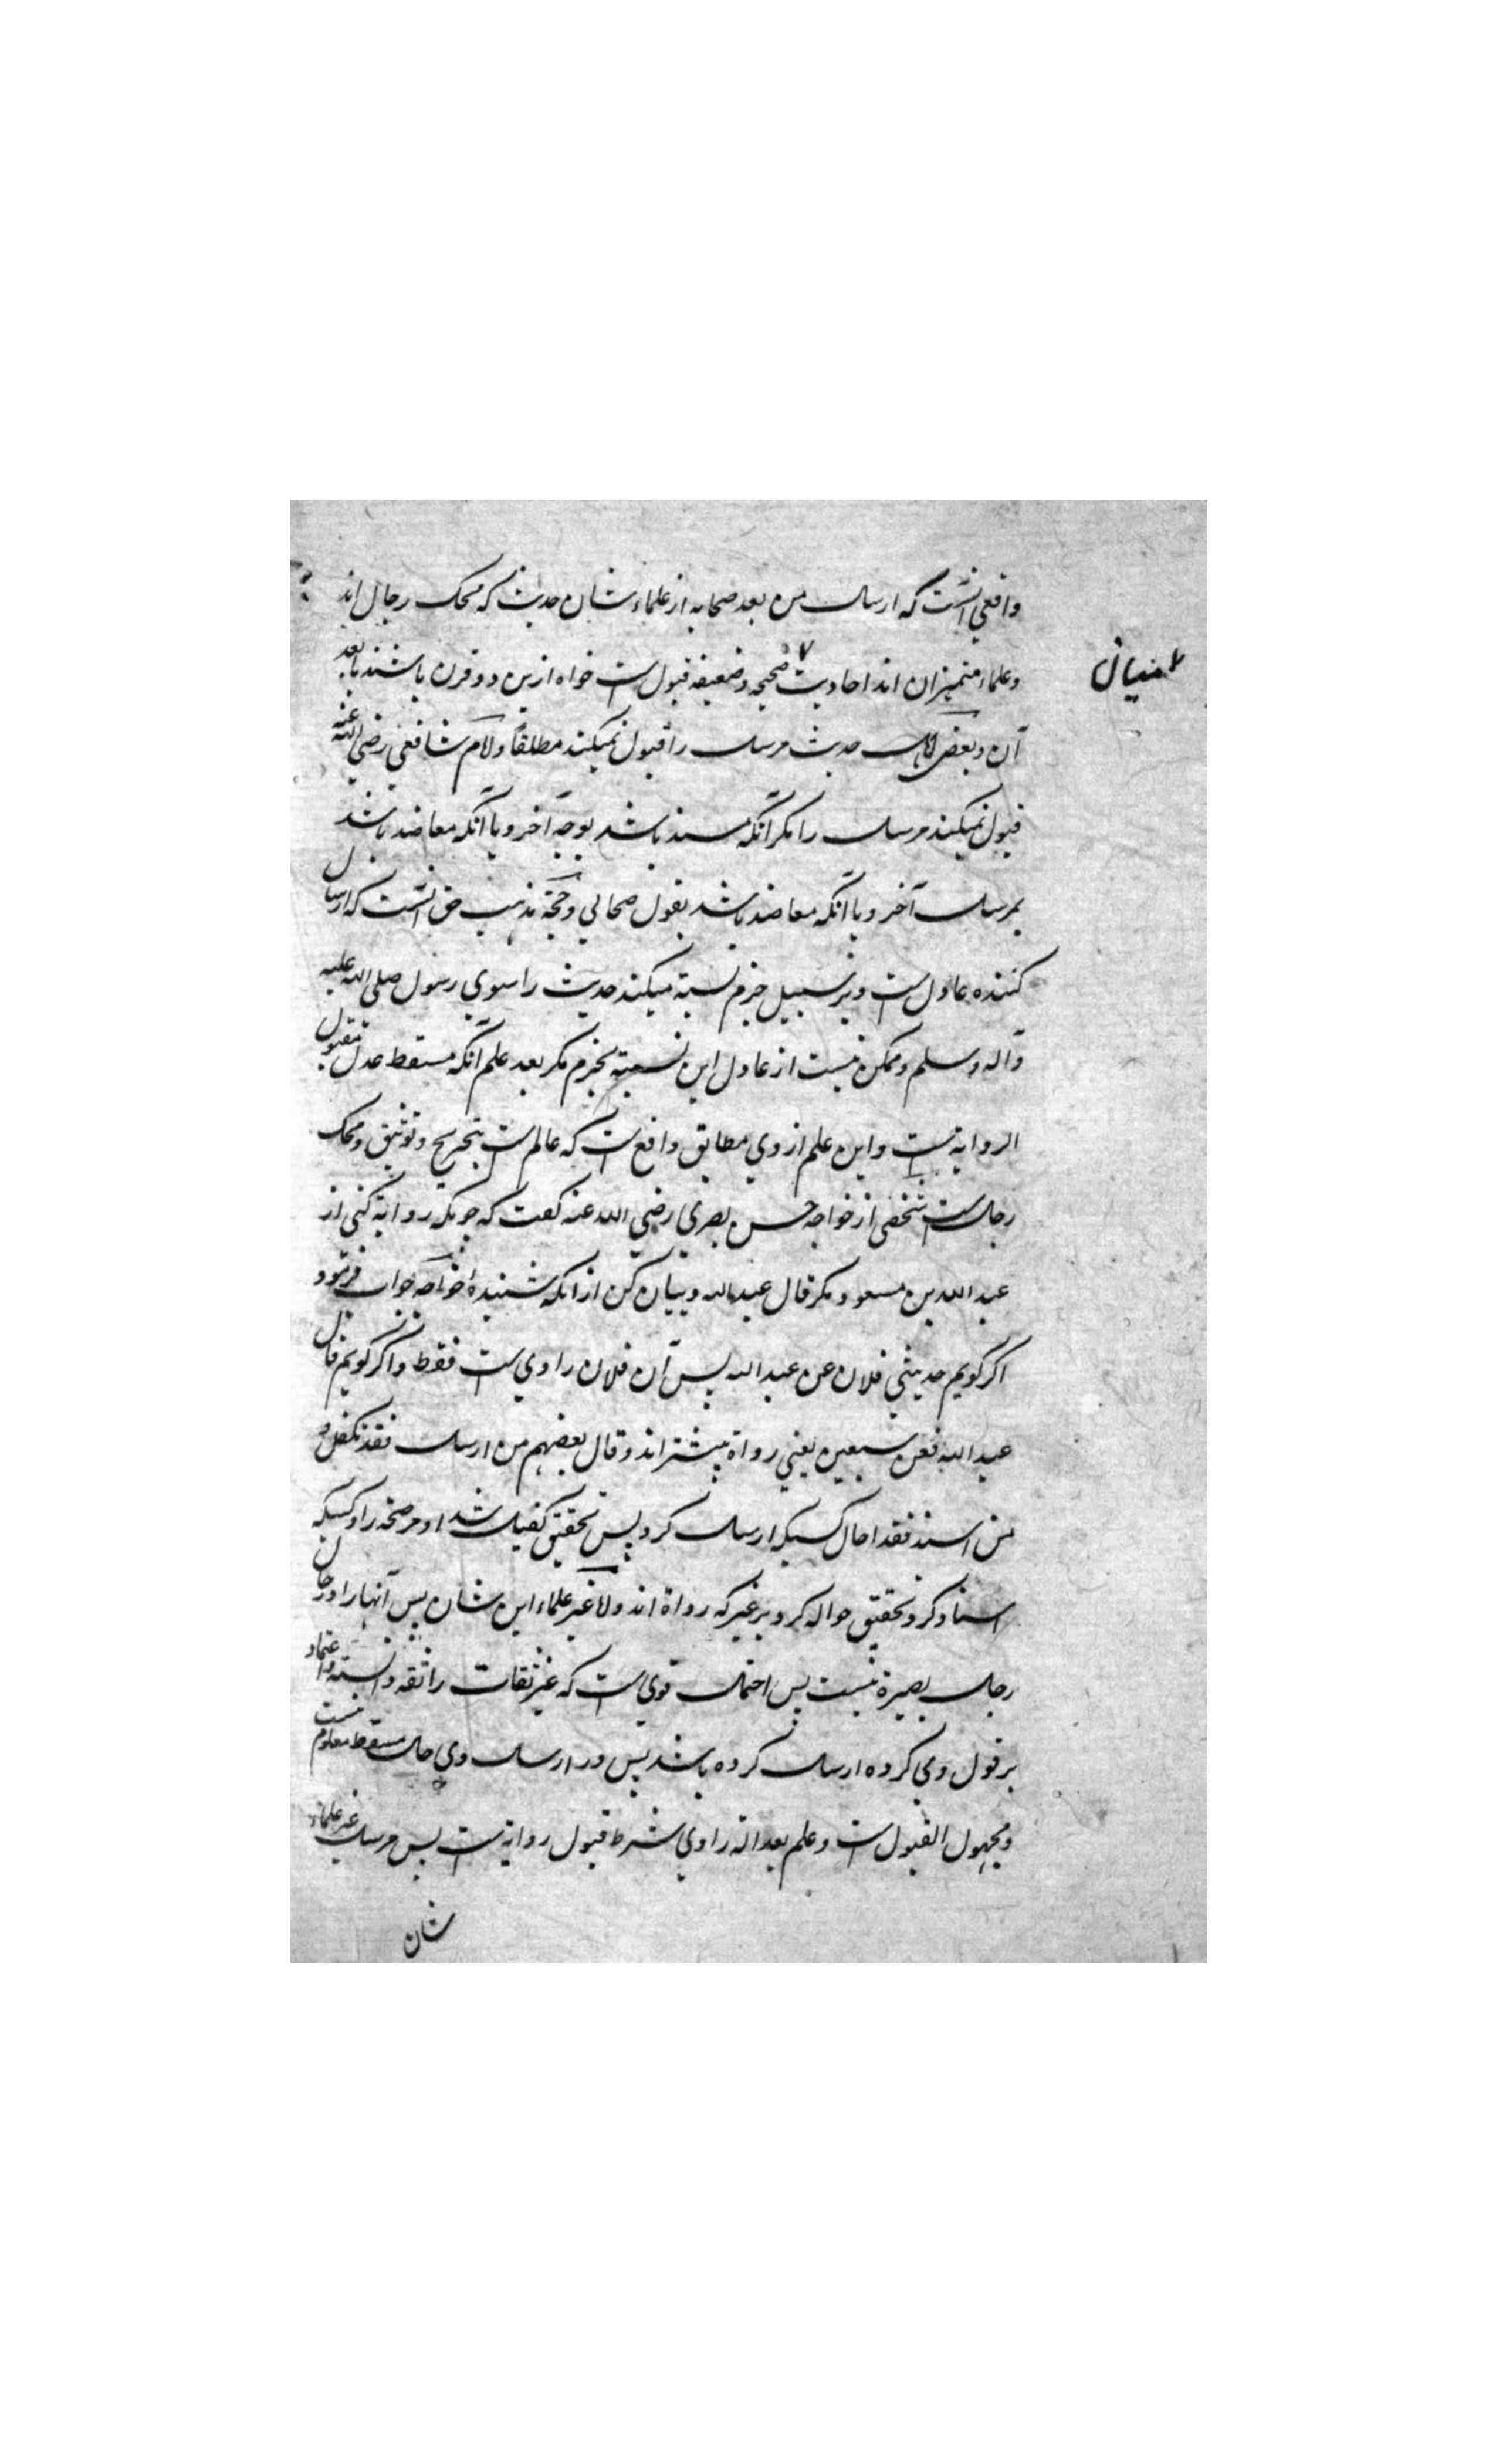 واقعی آنست که ارسال من بعد صحابه از علماء شان حدیث که محک رجال اند
وعلماء متمیزان اند احادیث صحیحه وضعیفه قبول است خواه ازین دو قرن باشند یا بعد
میان
آن وبعض حدیث مرسل را قبول نمیکند مطلقاً وامام شافعی رضی الله عنه
قبول نمیکند مرسل را مکر آنکه مسند باشد بوجه آخر ویا آنکه معاضد باشد
بمرسل آخر ویا آنکه معاضد باشد بقول صحابی وحجة مذهب حق آنست که ارسال
کننده عادل است وبر سبیل جزم نسبة میکند حدیث را سوی رسول صلی الله علیه
وآله وسلم وممکن نیست از عادل این نسبة بجزم مکر بعد علم آنکه مسقط عدل مقبول
الروایة است واین علم از وی مطابق واقع است که عالم است بتجریح وتوثیق ومحک
رجال است شخصی از خواجه حسن بصری رضی الله عنه کفت که چونکه روایة کنی از
عبد الله بن مسعود مکر قال عبد الله وبیان کن از آنکه شنیدهٔ خواجه جواب فرمود
اکر کویم حدیثی فلان عن عبد الله پس آن فلان راوی است فقط واکر کویم قال
عبد الله فعن سبعین یعنی رواة بیشتر اند وقال بعضهم من ارسل فقد تکفل و
من اسند فقد احال کسیکه ارسال کرد پس بتحقیق کفیل شد او مر صحة را وکسیکه
اسناد کرد بتحقیق حواله کرد بر غیر که رواة اند واما غیر علماء این شان پس آنها را در حال
رجال بصیرة نیست پس احتمال قوی است که غیر ثقات را ثقه دانسته واعتماد
بر قول وی کرده ارسال کرده باشد پس در ارسال وی حال مسقط معلوم نیست
ومجهول القبول است وعلم بعدالة راوی شرط قبول روایة است پس مرسل غیر علماء
شان